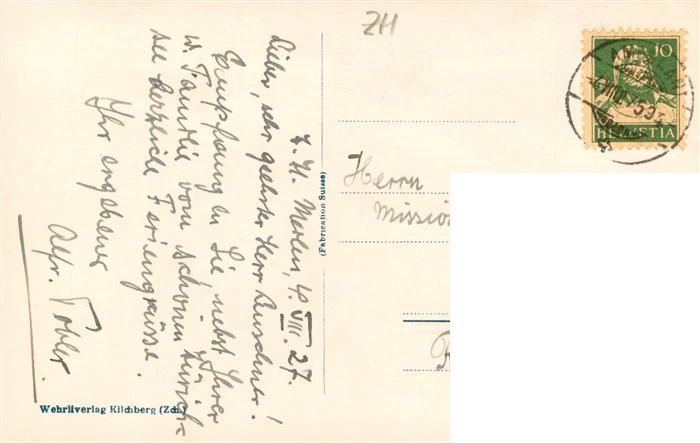 Z. Zt. Meilen, 4. VIII. 27.
Lieber, sehr geehrter Herr Leuschner!
Empfangen Sie, nebst Ihrer
w. Familie vom schönen Zürich-
see herzliche Feriengrüsse.
Ihr ergebener
Alfr. Tobler
ZH
10
HELVETIA
Herrn
Missio
(Fabrication Suisse)
Wehrliverlag Kilchberg (Zch.)